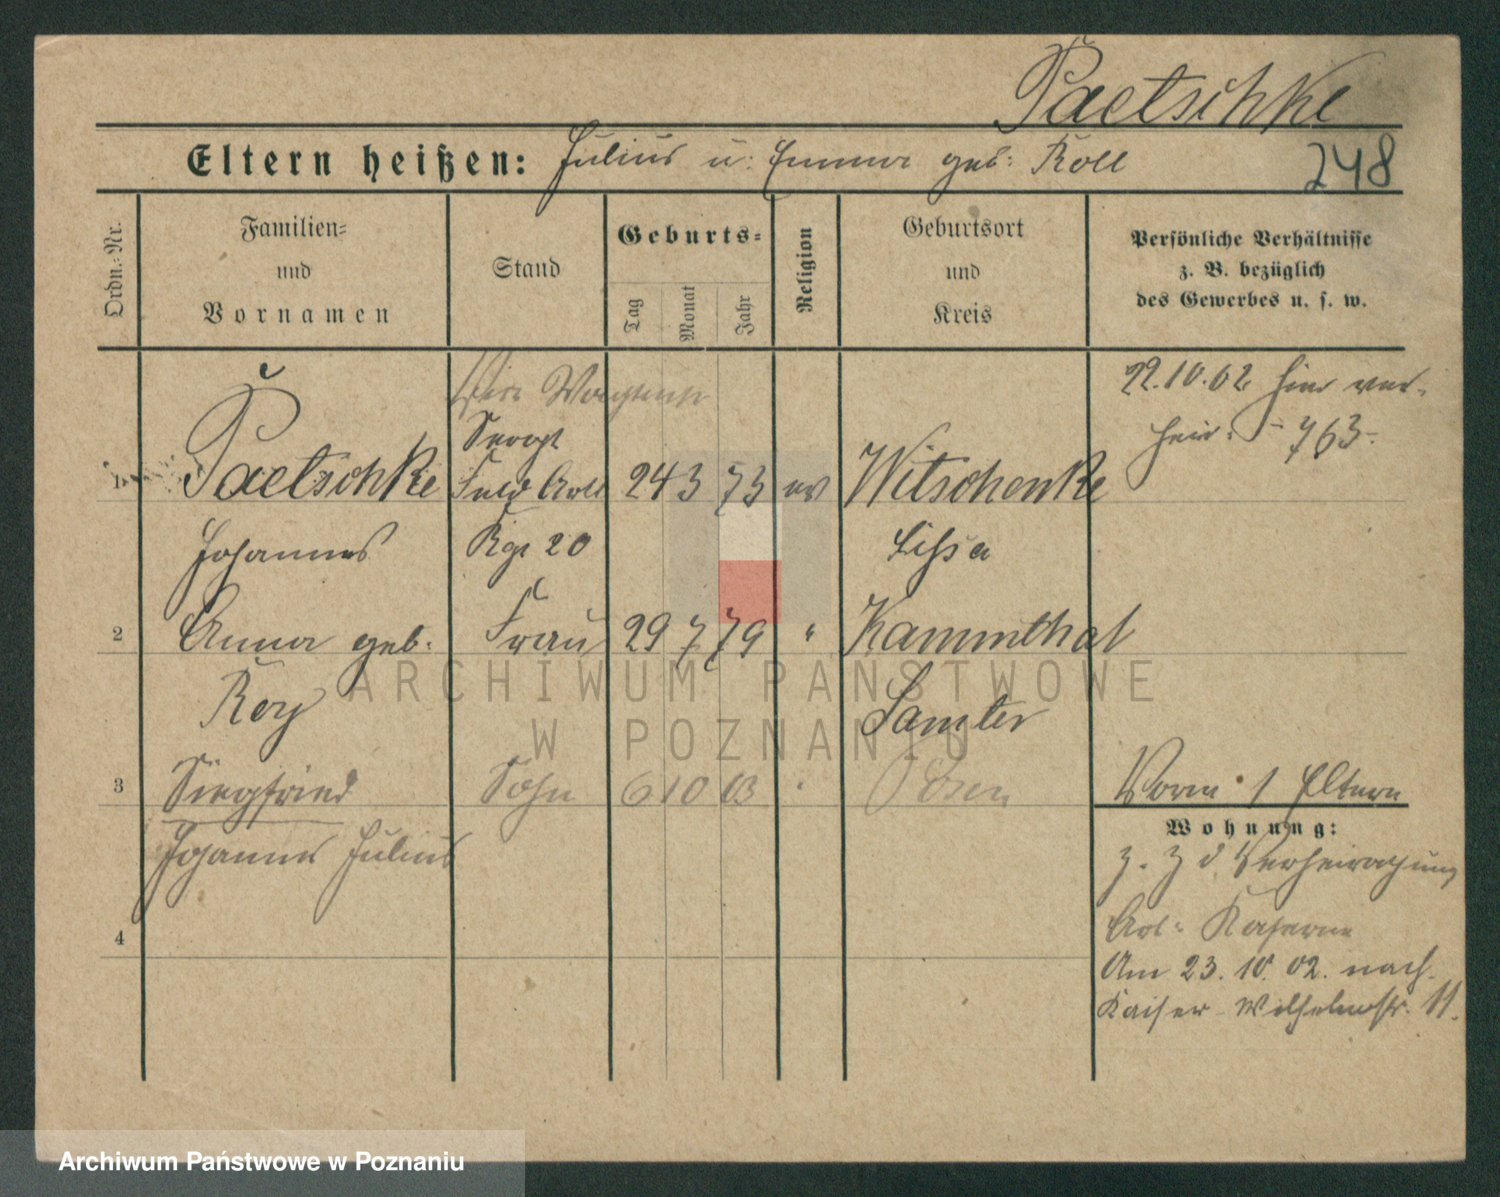 Paetschke
Eltern heißen: Julius u. Emma geb. Roll
248
Ordn.-Nr.
Familien-
und
Vornamen
Stand
Geburts-
Tag
Monat
Jahr
Religion
Geburtsort
und
Kreis
Persönliche Verhältnisse
z. B. bezüglich
des Gewerbes u. s. w.
22.10.02 hier ver-
heir. 763.
Sergt
1 Paetschke Feld Artl 24 3 73 ev Witschenke
Johannes Rgt 20 Lissa
2 Anna geb. Frau 29 7 79 " Kammthal
Roy Samter
3 Siegfried Sohn 6 10 03 " Posen
Johannes Julius
4
Vorm. 1 Eltern
Wohnung:
z. Z d. Verheiratung
Art. Kaserne
Am 23. 10. 02. nach
Kaiser-Wilhelmstr. 11.
ARCHIWUM PAŃSTWOWE
W POZNANIU
Archiwum Państwowe w Poznaniu